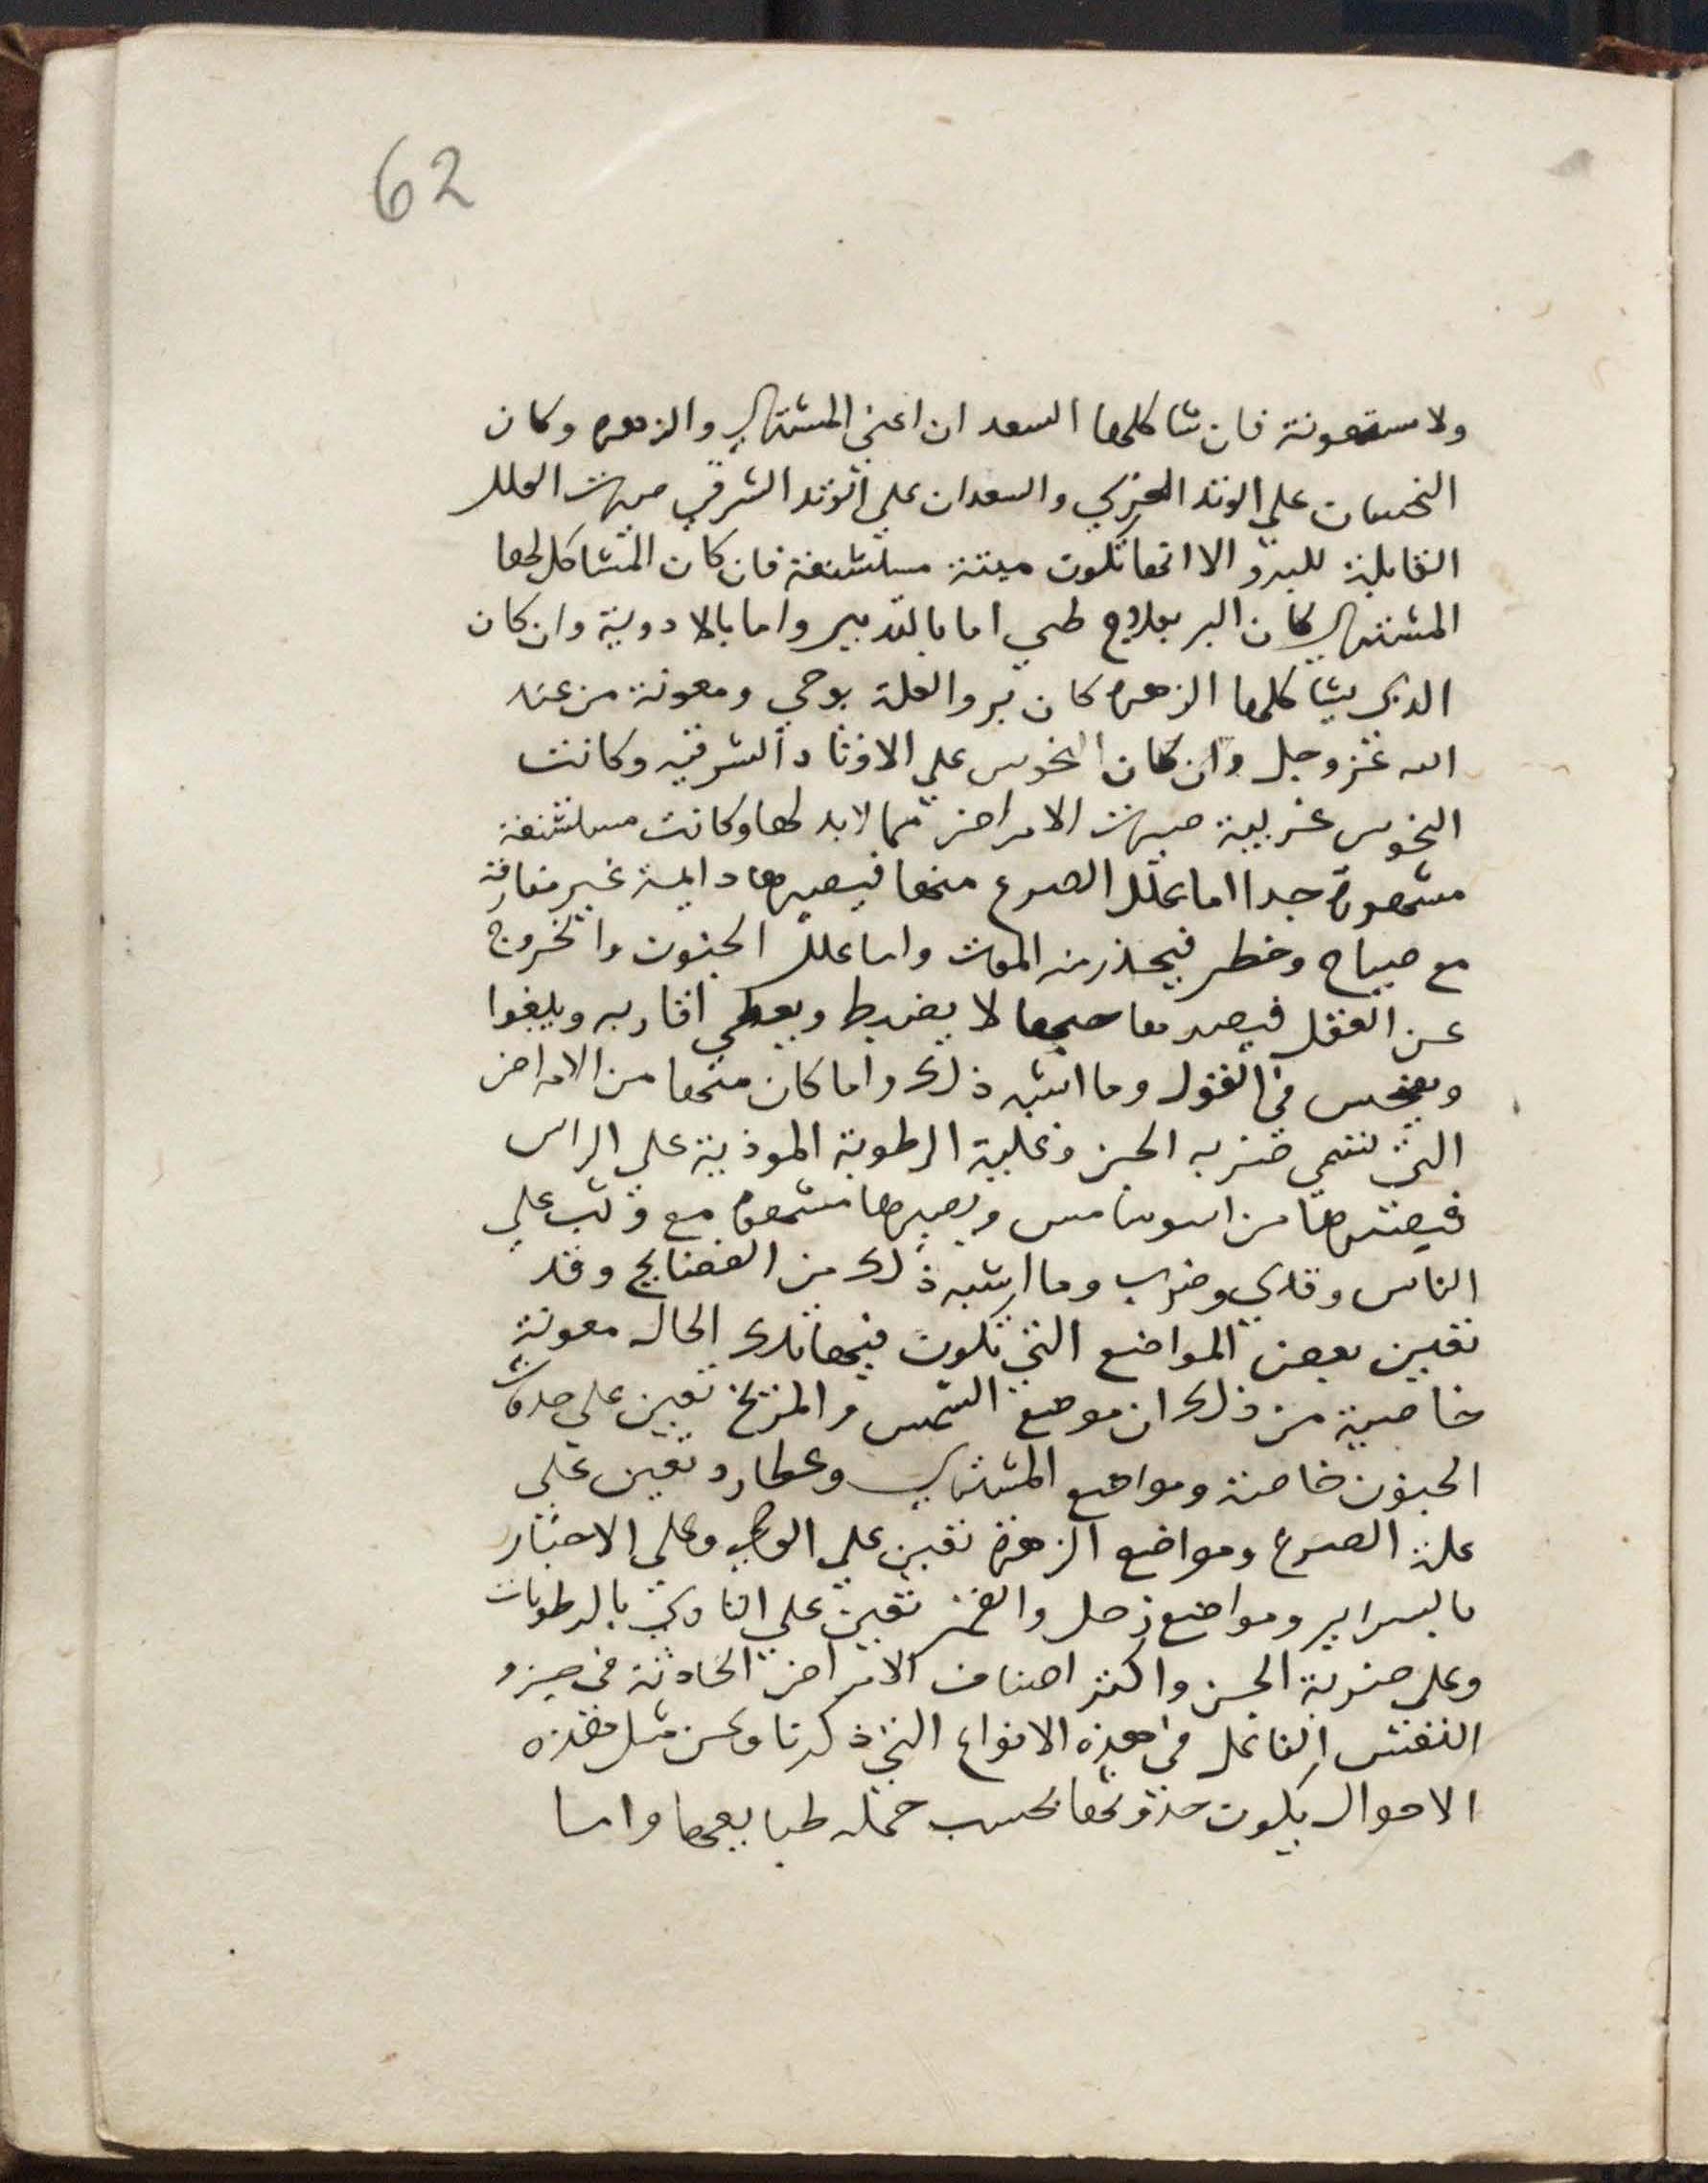 62
ولا مستعونة فان شاكلها السعدان اعني المشتري والزهره وكان
النحسان علي الوتد الغربي والسعدان علي الوتد الشرقي صيرت العلل
القابلة للبرو الا انها تكون ميتة مستشنعة فان كان المشاكل لها
المشتري كان البر بعلاج طبي اما بالتدبير واما بالادوية وان كان
الذي يشاكلها الزهره كان برو العلة بوحي ومعونة من عند
الله عز وجل وان كان النحوس علي الاوتاد الشرقيه وكانت
النحوس غربية صيرت الامراض مما لابد لها وكانت مستشنعة
مشهورة جدا اما علل الصرع منها فيصيرها دايمة غير مفارقة
مع صياح وخطر فيحذر منه الموت واما علل الجنون والخروج
عن العقل فيصير معا لا يضبط ويعطي اقاربه ويلغوا
في القول وما اشبه ذلك واما كان منها من الامراض
التي تنتمي ضربه الجن وغلبة الرطوبة الموذية علي الراس
من ويصيرها مشهوره مع وثب علي
الناس وقذي وضرب وما اشبه ذلك من الفضايح وقد
تعين بعض المواضع التي تكون فيها تلك الحال معونة
خاصية من ذلك ان موضع الشمس والمريخ تعين علي حدوث
الجنون خاصة ومواضع المشتري وعطارد تعين علي
علة الصرع ومواضع الزهرة تعين علي الوحي وعلي الاخبار
بالسراير ومواضع زحل والقمر تعين علي التاذي بالرطوبات
وعلي ضربة الجن واكثر اصناف الامراض الحادثة في جزو
النفس الفاعل في هذه الانواع التي ذكرنا وعن مثل هذه
الاحوال يكون حدوثها بحسب جملة طبايعها واما